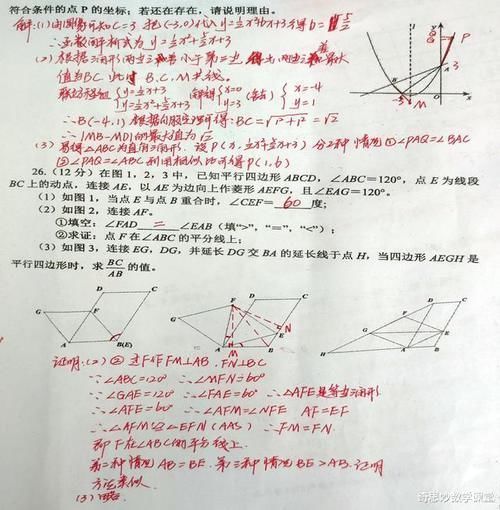 符合条件的点 P 的坐标；若还在存在，请说明理由。
解:(1)由图易可知C=3 把(-3,0)代入 y=½x²+bx+3 得 b=5/2
∴函数解析式为 y=½x²+5/2x+3
(2)根据三角形两边之差小于第三边
值为BC 此时 B.C.M共线。
联立方程组 { y=½x+3 y=½x²+5/2x+3 解得 { x=0 y=3 (舍去) { x=-4 y=1
∴B(-4,1) 根据勾股定理可得:BC=
∴|MB-MD|的最大值为
(3) 易得△ABC为直角三角形. 设P(x, ½x²+5/2x+3) 分2种情况 ①∠PAQ=∠BAC
②∠PAQ=∠ABC 利用相似比可得 P(1,6)
26.（12 分）在图 1、2、3 中，已知平行四边形 ABCD，∠ABC=120°，点 E 为线段
BC 上的动点，连接 AE，以 AE 为边向上作菱形 AEFG，且∠EAG=120°。
（1）如图 1，当点 E 与点 B 重合时，∠CEF= 60 度；
（2）如图 2，连接 AF。
①填空：∠FAD = ∠EAB（填“>”，“=”，“<”）；
②求证：点 F 在∠ABC 的平分线上；
（3）如图 3，连接 EG，DG，并延长 DG 交 BA 的延长线于点 H，当四边形 AEGH 是
平行四边形时，求 BC/AB 的值。
证明:(2) ② 过F作FM⊥AB, FN⊥BC
∵∠ABC=120° ∴∠MFN=60°
∵∠GAE=120° ∴∠FAE=60° ∴△AFE是等边三角形
∴∠AFE=60° ∴∠AFM=∠NFE AF=EF
∴△AFM≌△EFN (AAS) ∴FM=FN.
即F在∠ABC的平分线上.
第二种情况 AB=BE. 第三种情况 BE>AB. 证明
方法类似.
(3) 略
奇思妙数学课堂